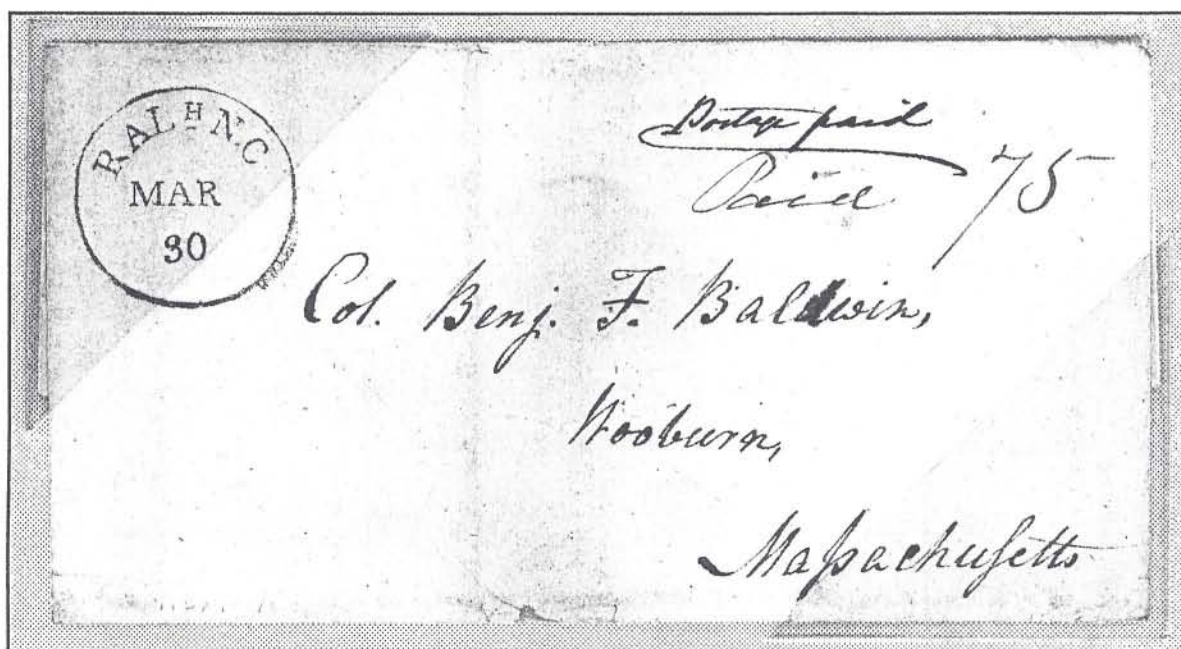 RALH N.C
MAR
30
Postage paid
Paid 75
Col. Benj. F. Baldwin,
Wooburn,
Maſsachuſetts